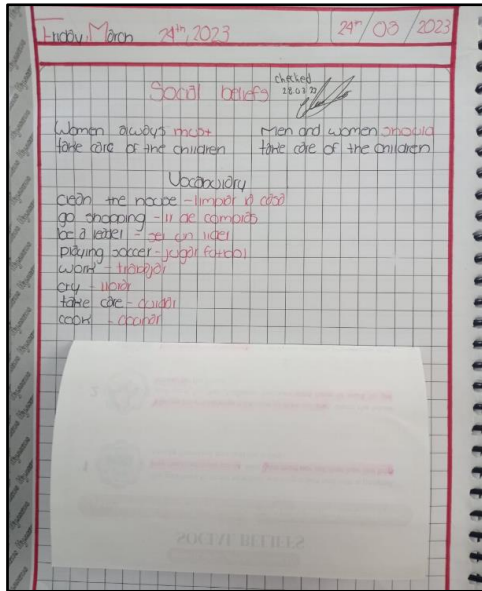 Friday, March 24th, 2023 24th/03/2023
Social beliefs checked
28.03.23
Women always must Men and women should
take care of the children take care of the children
Vocabulary
clean the house - limpiar la casa
go shopping - ir de compras
be a leader - ser un lider
playing soccer - jugar futbol
work - trabajar
cry - llorar
take care - cuidar
cook - cocinar
2
1
SOCIAL BELIEFS